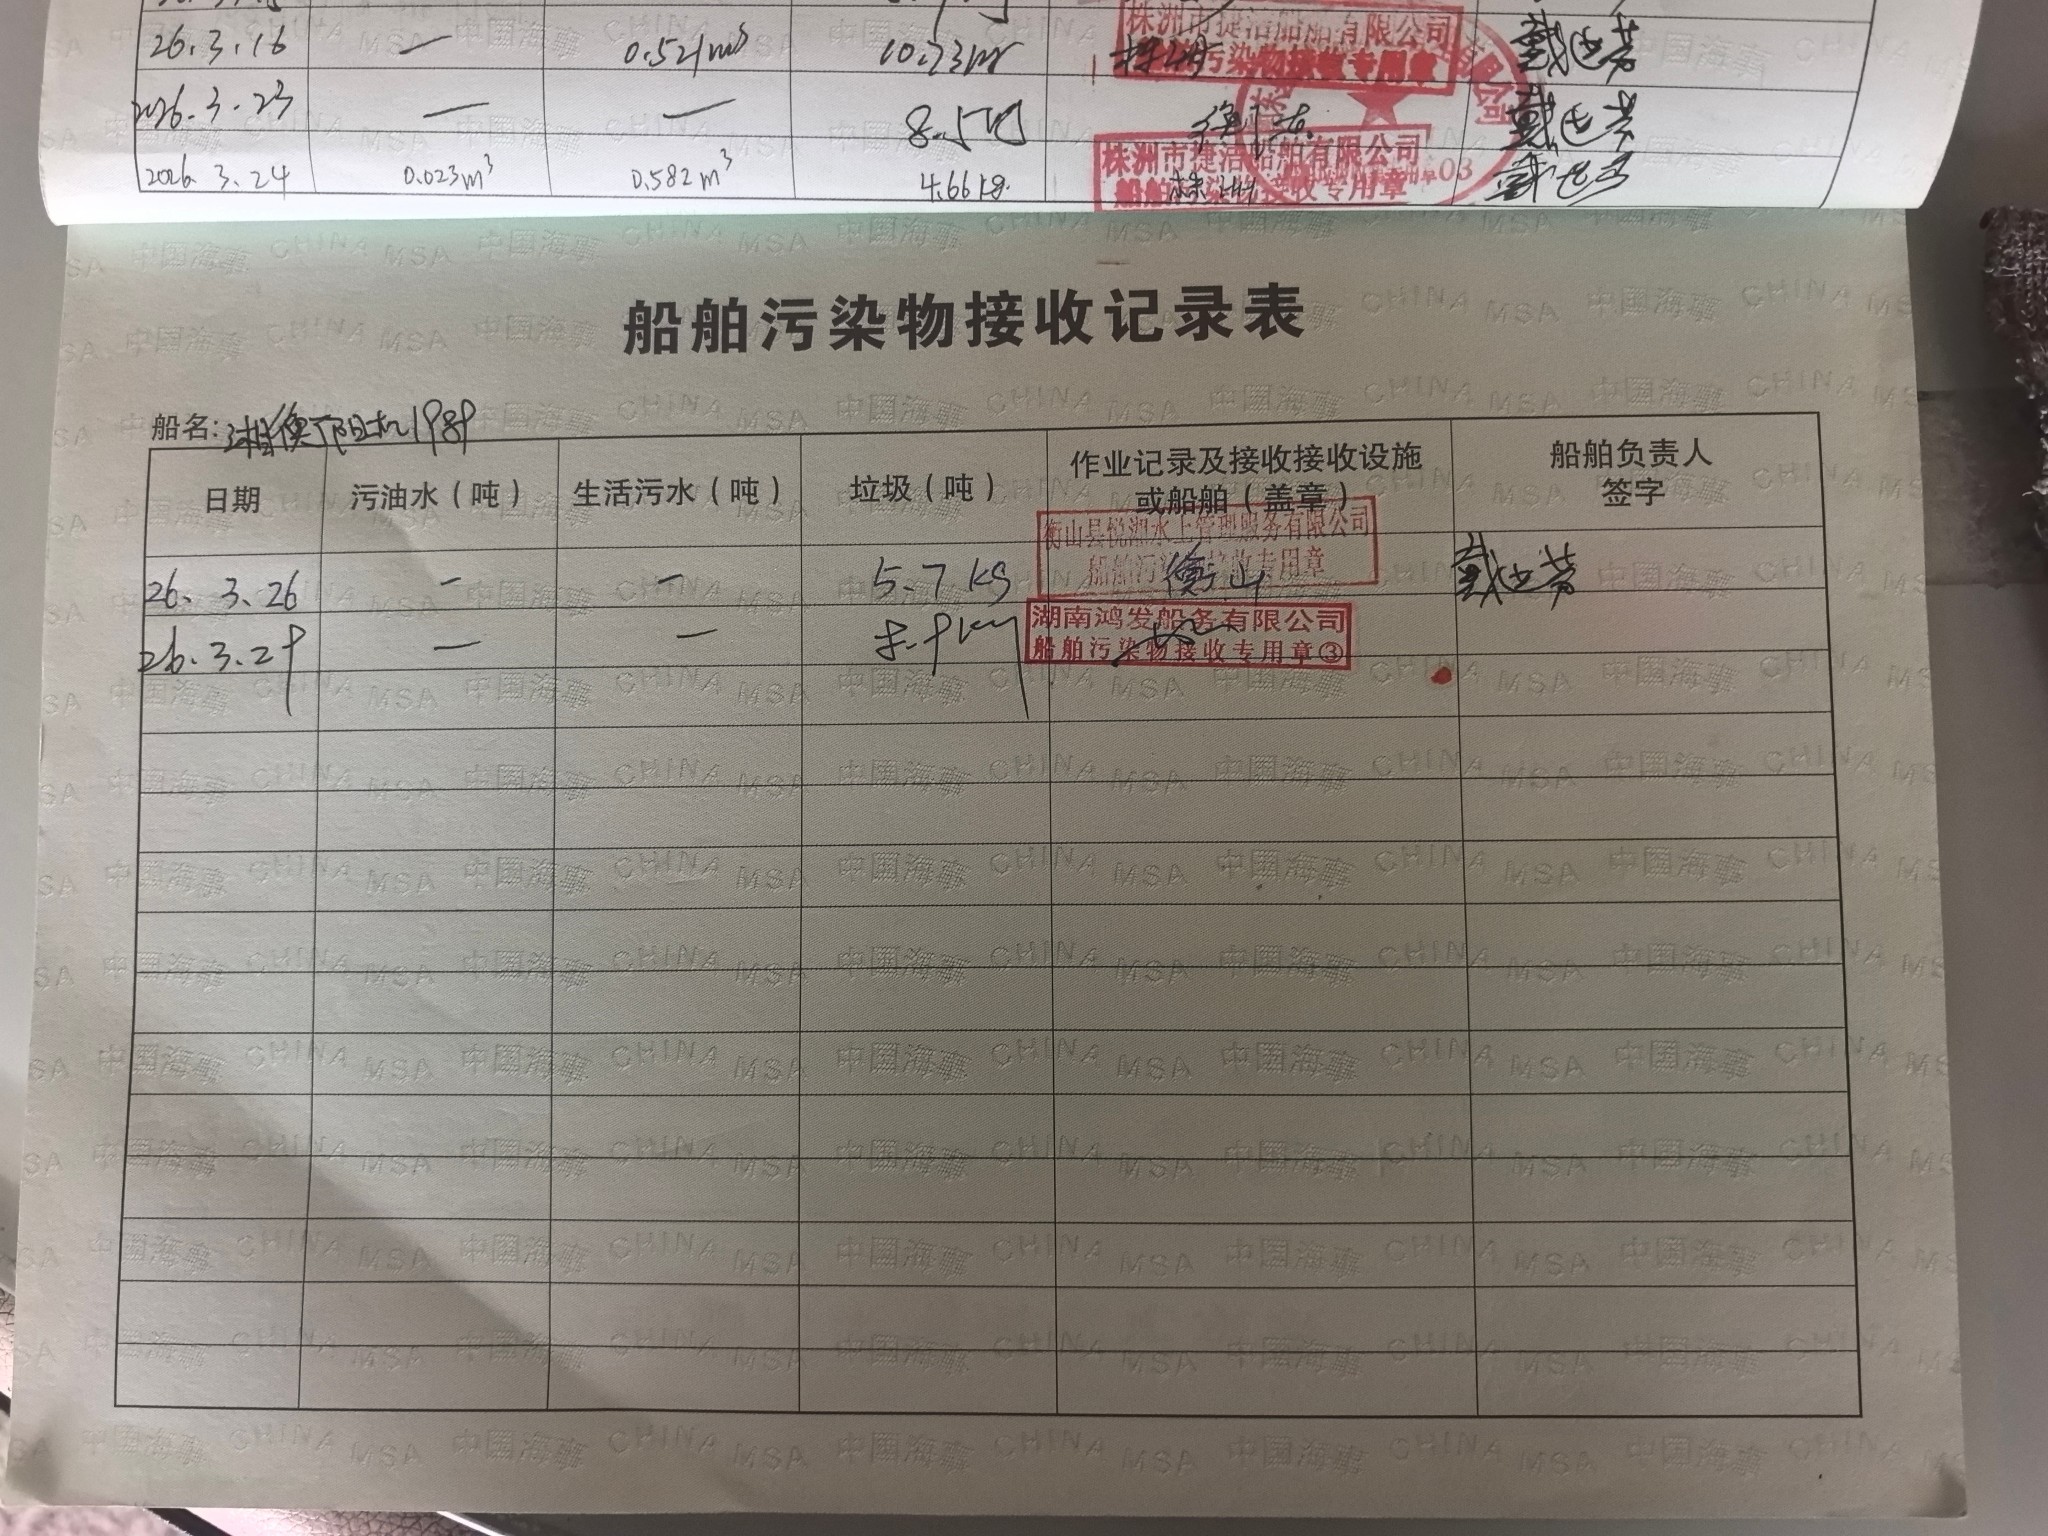 26.3.16 — 0.521m³ 10.23 株洲 戴
株洲市捷洁船舶有限公司
污染物接收专用章
2026.3.23 — — 8.5 戴
株洲市捷洁船舶有限公司
船舶污染物接收专用章03
2026.3.24 0.023m³ 0.582m³ 4.66kg. 株洲 戴
船舶污染物接收记录表
船名:湘衡阳机1989
日期 污油水(吨) 生活污水(吨) 垃圾(吨) 作业记录及接收接收设施 船舶负责人
或船舶(盖章) 签字
衡山县悦湘水上管理服务有限公司
船舶污染物接收专用章
26.3.26 — — 5.7KG 衡山 戴
湖南鸿发船务有限公司
船舶污染物接收专用章③
26.3.29 — —
中国海事 CHINA MSA